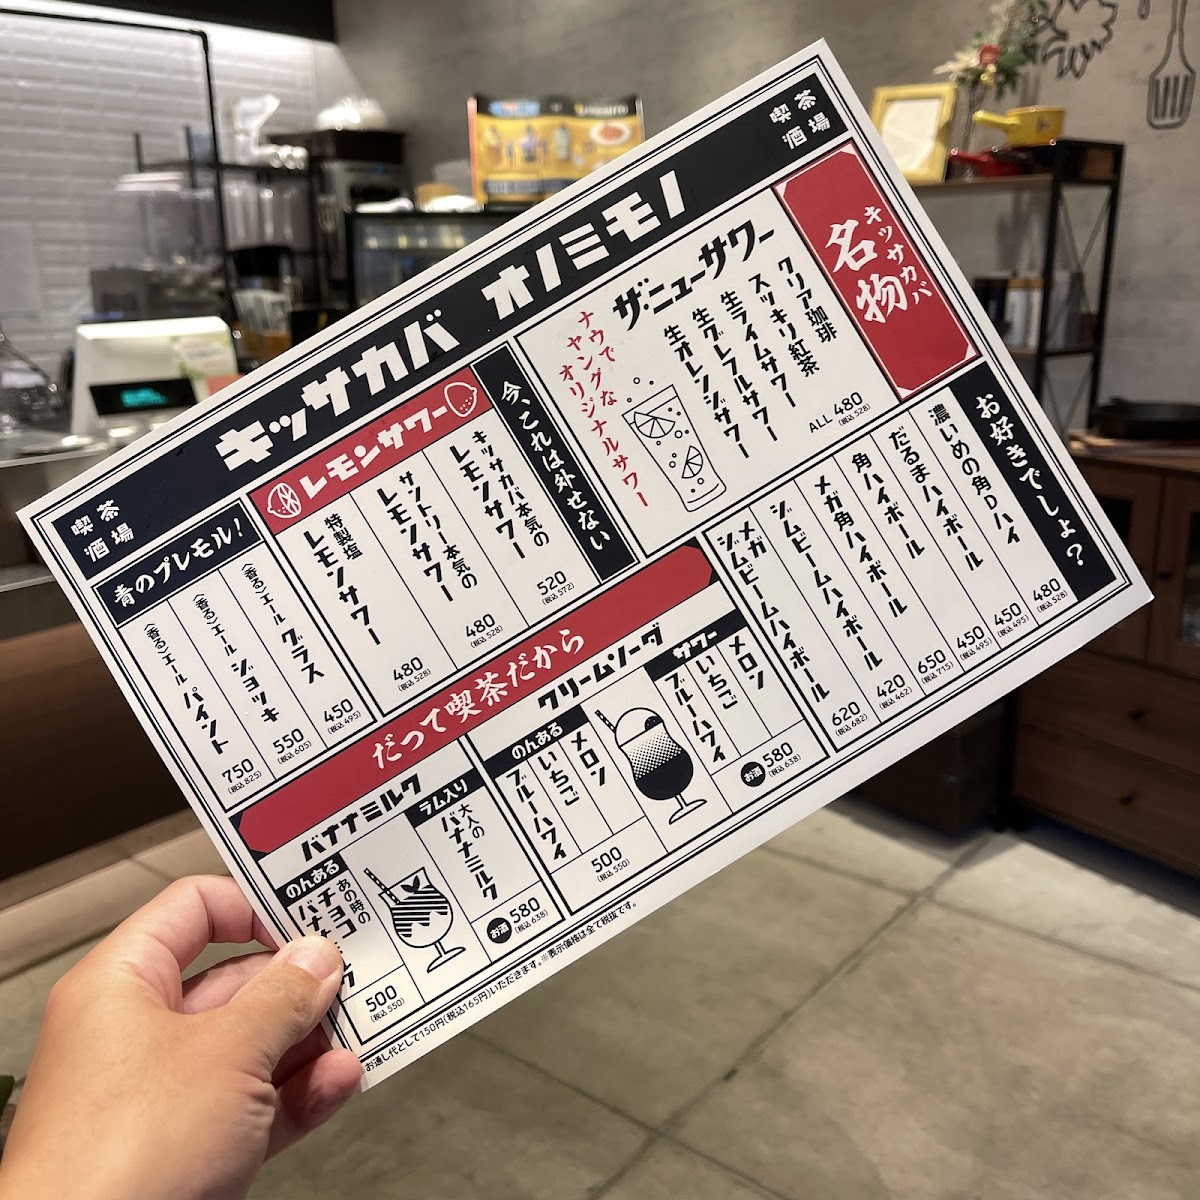 喫茶
酒場
キッサカバ オノミモノ
喫茶
酒場
キッサカバ
名物
ザ・ニューサワー
クリア珈琲
スッキリ紅茶
生ライムサワー
生グレフルサワー
生オレンジサワー
ALL 480
(税込 528)
ナウで
ヤングな
オリジナルサワー
今、これは外せない
レモンサワー
キッサカバ本気の
レモンサワー
520
(税込 572)
サントリー本気の
レモンサワー
480
(税込 528)
特製塩
レモンサワー
480
(税込 528)
青のプレモル!
〈香る〉エール グラス
450
(税込 495)
〈香る〉エール ジョッキ
550
(税込 605)
〈香る〉エール パイント
750
(税込 825)
お好きでしょ?
濃いめの角Dハイ
480
(税込 528)
だるまハイボール
450
(税込 495)
角ハイボール
450
(税込 495)
メガ角ハイボール
650
(税込 715)
ジムビームハイボール
420
(税込 462)
メガ
ジムビームハイボール
620
(税込 682)
だって喫茶だから
クリームソーダ
サワー
メロン
いちご
ブルーハワイ
お酒 580
(税込 638)
のんある
メロン
いちご
ブルーハワイ
500
(税込 550)
バナナミルク
ラム入り
大人の
バナナミルク
お酒 580
(税込 638)
のんある
あの時の
チョコ
バナナ
500
(税込 550)
お通し代として150円(税込165円)いただきます。※表示価格は全て税抜です。